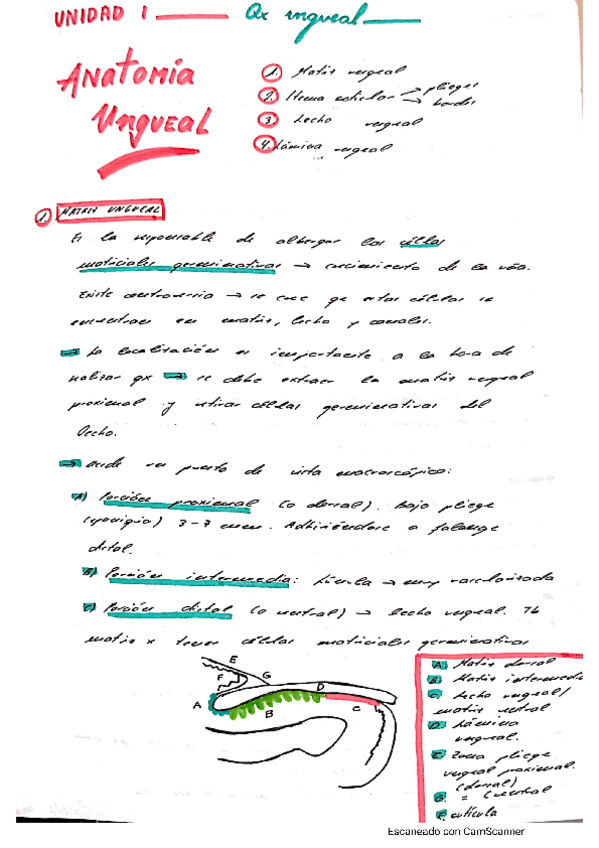 UNIDAD 1 — Qx ungueal —
ANATOMÍA
UNGUEAL
1. Matriz ungueal
2. Sistema → pliegues
→ bordes
3. Lecho ungueal
4. Lámina ungueal
1. MATRIZ UNGUEAL
Es la responsable de albergar las céllas
matriciales germinativas → crecimiento de la uña.
Existe controversia → se cree qe estas células se
encuentran en matriz, lecho y canales.
→ La localización es importante a la hora de
realizar qx → se debe extraer la matriz ungueal
proximal y retirar células germinativas del
lecho.
→ Desde un punto de vista macroscópico:
A) Porción proximal (o dorsal). Bajo pliege
(eponiquio) 3-7 mm. Adhiriéndose a falange
distal.
B) Porción intermedia: Lúnula → muy vascularizada
C) Porción distal (o ventral) → lecho ungueal. Tb
matriz x tener células matriciales germinativas
E
F
G
D
A
B
C
A Matriz dorsal
B Matriz intermedia
C Lecho ungueal/
matriz ventral
D Lámina
ungueal.
E Zona pliege
ungueal proximal.
(dorsal)
G = (ventral
F cutícula
Escaneado con CamScanner